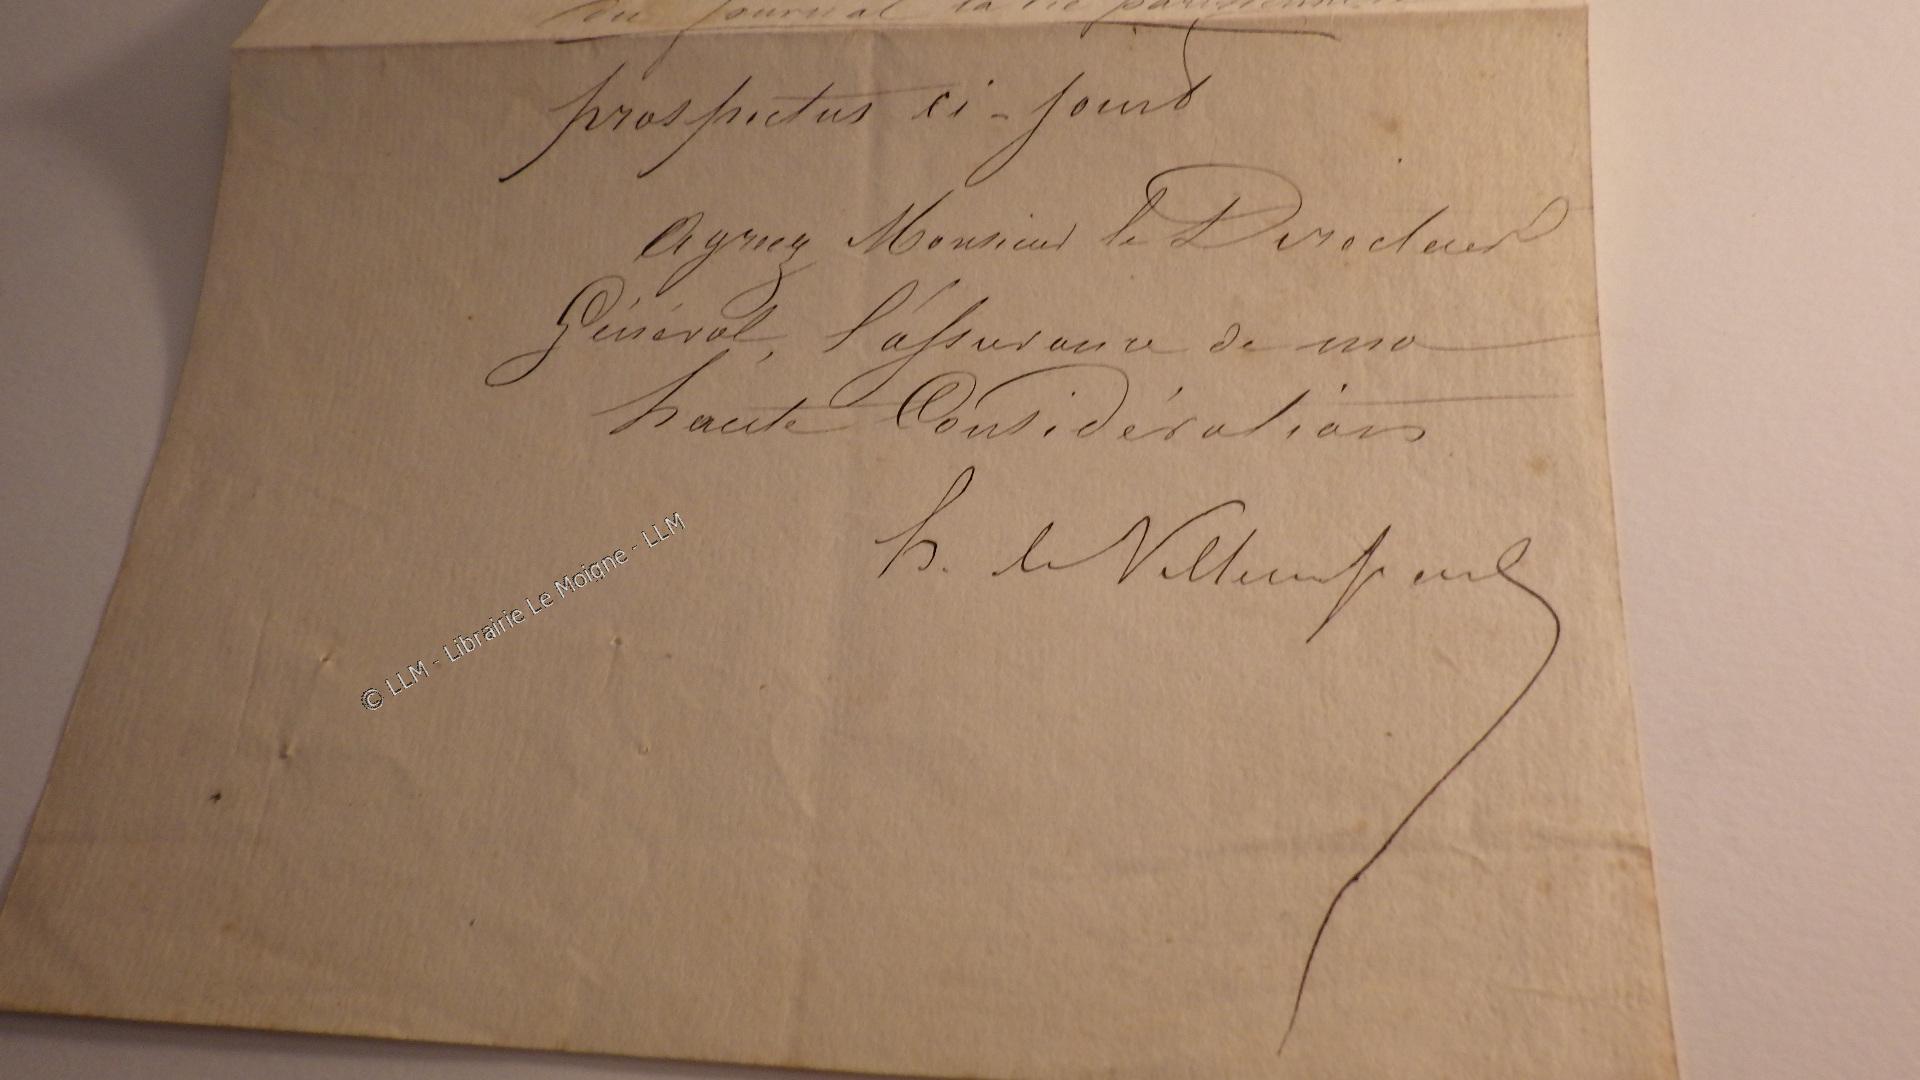 du journal la vie parisienne
prospectus ci-joint
Agréez Monsieur le Directeur
Général, l'assurance de ma
haute Considération
h. de
© LLM - Librairie Le Moigne - LLM